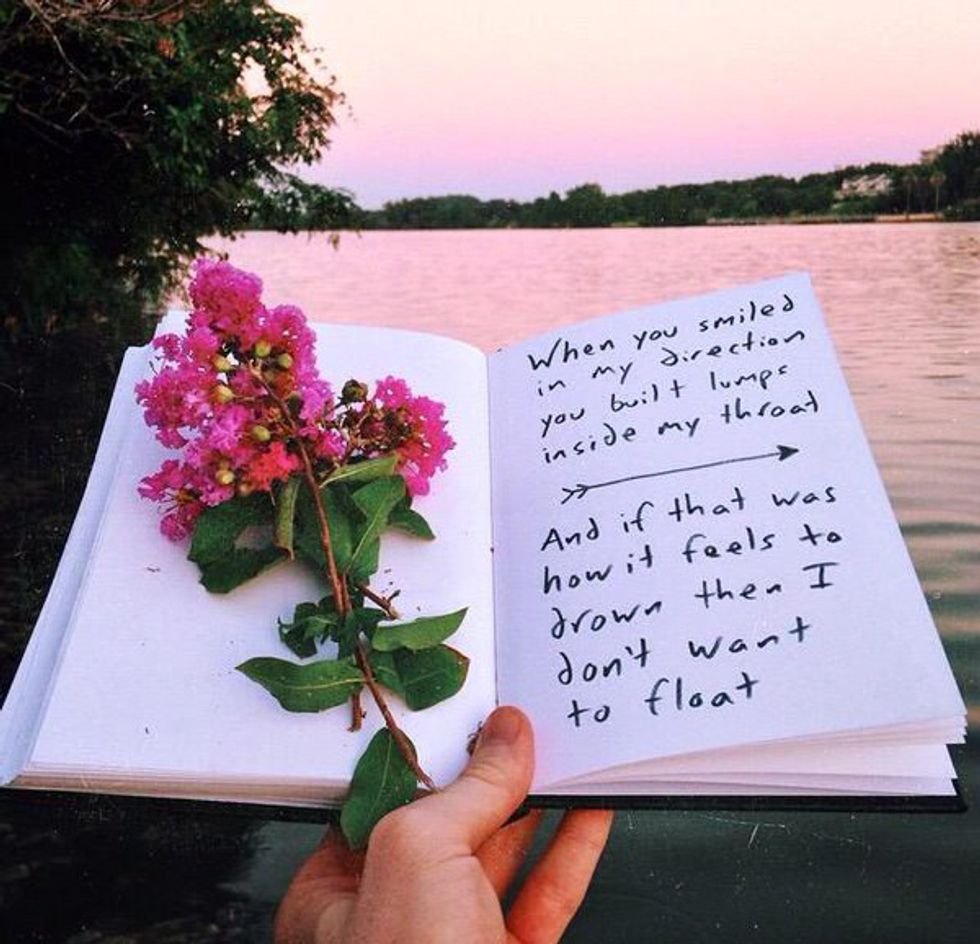 When you smiled
in my direction
you built lumps
inside my throat
And if that was
how it feels to
drown then I
don't want
to float